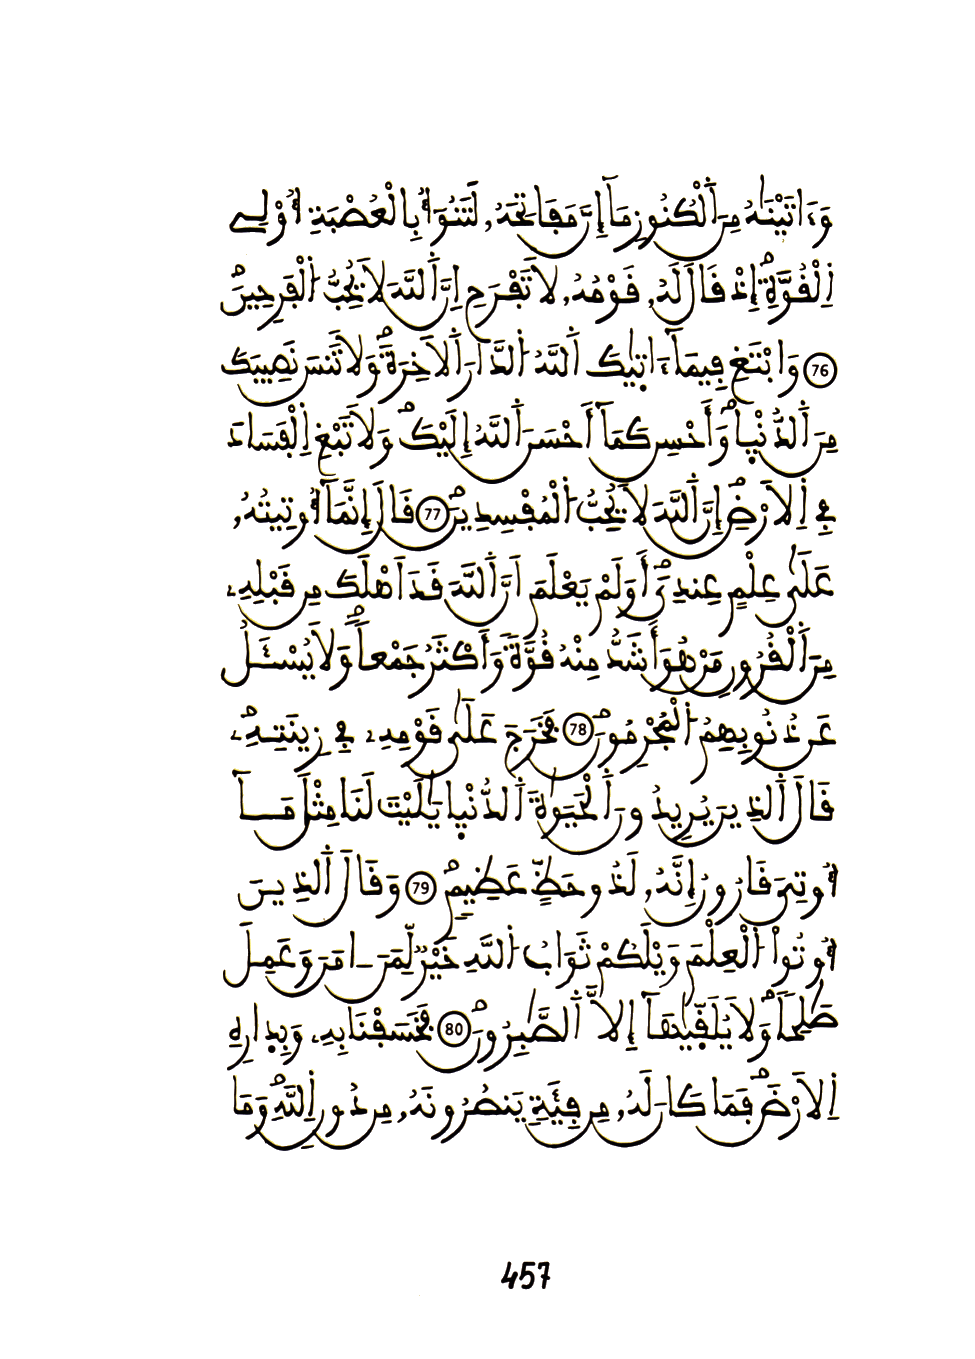 وَءَاتَيْنَٰهُ مِنَ اَلْكُنُوزِ مَآ إِنَّ مَفَاتِحَهُۥ لَتَنُوٓأُ بِالْعُصْبَةِ أُوْلِے
اِلْقُوَّةِۖ إِذْ قَالَ لَهُۥ قَوْمُهُۥ لَا تَفْرَحِ اِنَّ اَللَّهَ لَا يُحِبُّ اُلْفَرِحِينَۖ
76 وَابْتَغِ فِيمَآ ءَاتٜيٰكَ اَللَّهُ اُلدَّارَ اَلَاخِرَةَۖ وَلَا تَنسَ نَصِيبَكَ
مِنَ اَلدُّنْيٜاۖ وَأَحْسِن كَمَآ أَحْسَنَ اَللَّهُ إِلَيْكَۖ وَلَا تَبْغِ اِلْفَسَادَ
فِے اِلَارْضِۖ إِنَّ اَللَّهَ لَا يُحِبُّ اُلْمُفْسِدِينَۖ 77 قَالَ إِنَّمَآ أُوتِيتُهُۥ
عَلَىٰ عِلْمٍ عِندِےٓۖ أَوَلَمْ يَعْلَمَ اَنَّ اَللَّهَ قَدَ اَهْلَكَ مِن قَبْلِهِۦ
مِنَ اَلْقُرُونِ مَنْ هُوَ أَشَدُّ مِنْهُ قُوَّةٗ وَأَكْثَرُ جَمْعاٗۖ وَلَا يُسْـَٔلُ
عَن ذُنُوبِهِمُ اُلْمُجْرِمُونَۖ 78 فَخَرَجَ عَلَىٰ قَوْمِهِۦ فِے زِينَتِهِۦۖ
قَالَ اَلذِينَ يُرِيدُونَ اَلْحَيَوٰةَ اَلدُّنْيٜا يَٰلَيْتَ لَنَا مِثْلَ مَآ
أُوتِيَ قَارُونُ إِنَّهُۥ لَذُو حَظٍّ عَظِيمٖۖ 79 وَقَالَ اَلذِينَ
أُوتُواْ اُلْعِلْمَ وَيْلَكُمْ ثَوَابُ اُللَّهِ خَيْرٞ لِّمَنَ اٰمَنَ وَعَمِلَ
صَٰلِحاٗۖ وَلَا يُلَقّٜيٰهَآ إِلَّا اَلصَّٰبِرُونَۖ 80 فَخَسَفْنَا بِهِۦ وَبِدٜارِهِ
اِلَارْضَۖ فَمَا كَانَ لَهُۥ مِن فِئَةٖ يَنصُرُونَهُۥ مِن دُونِ اِللَّهِۖ وَمَا
457